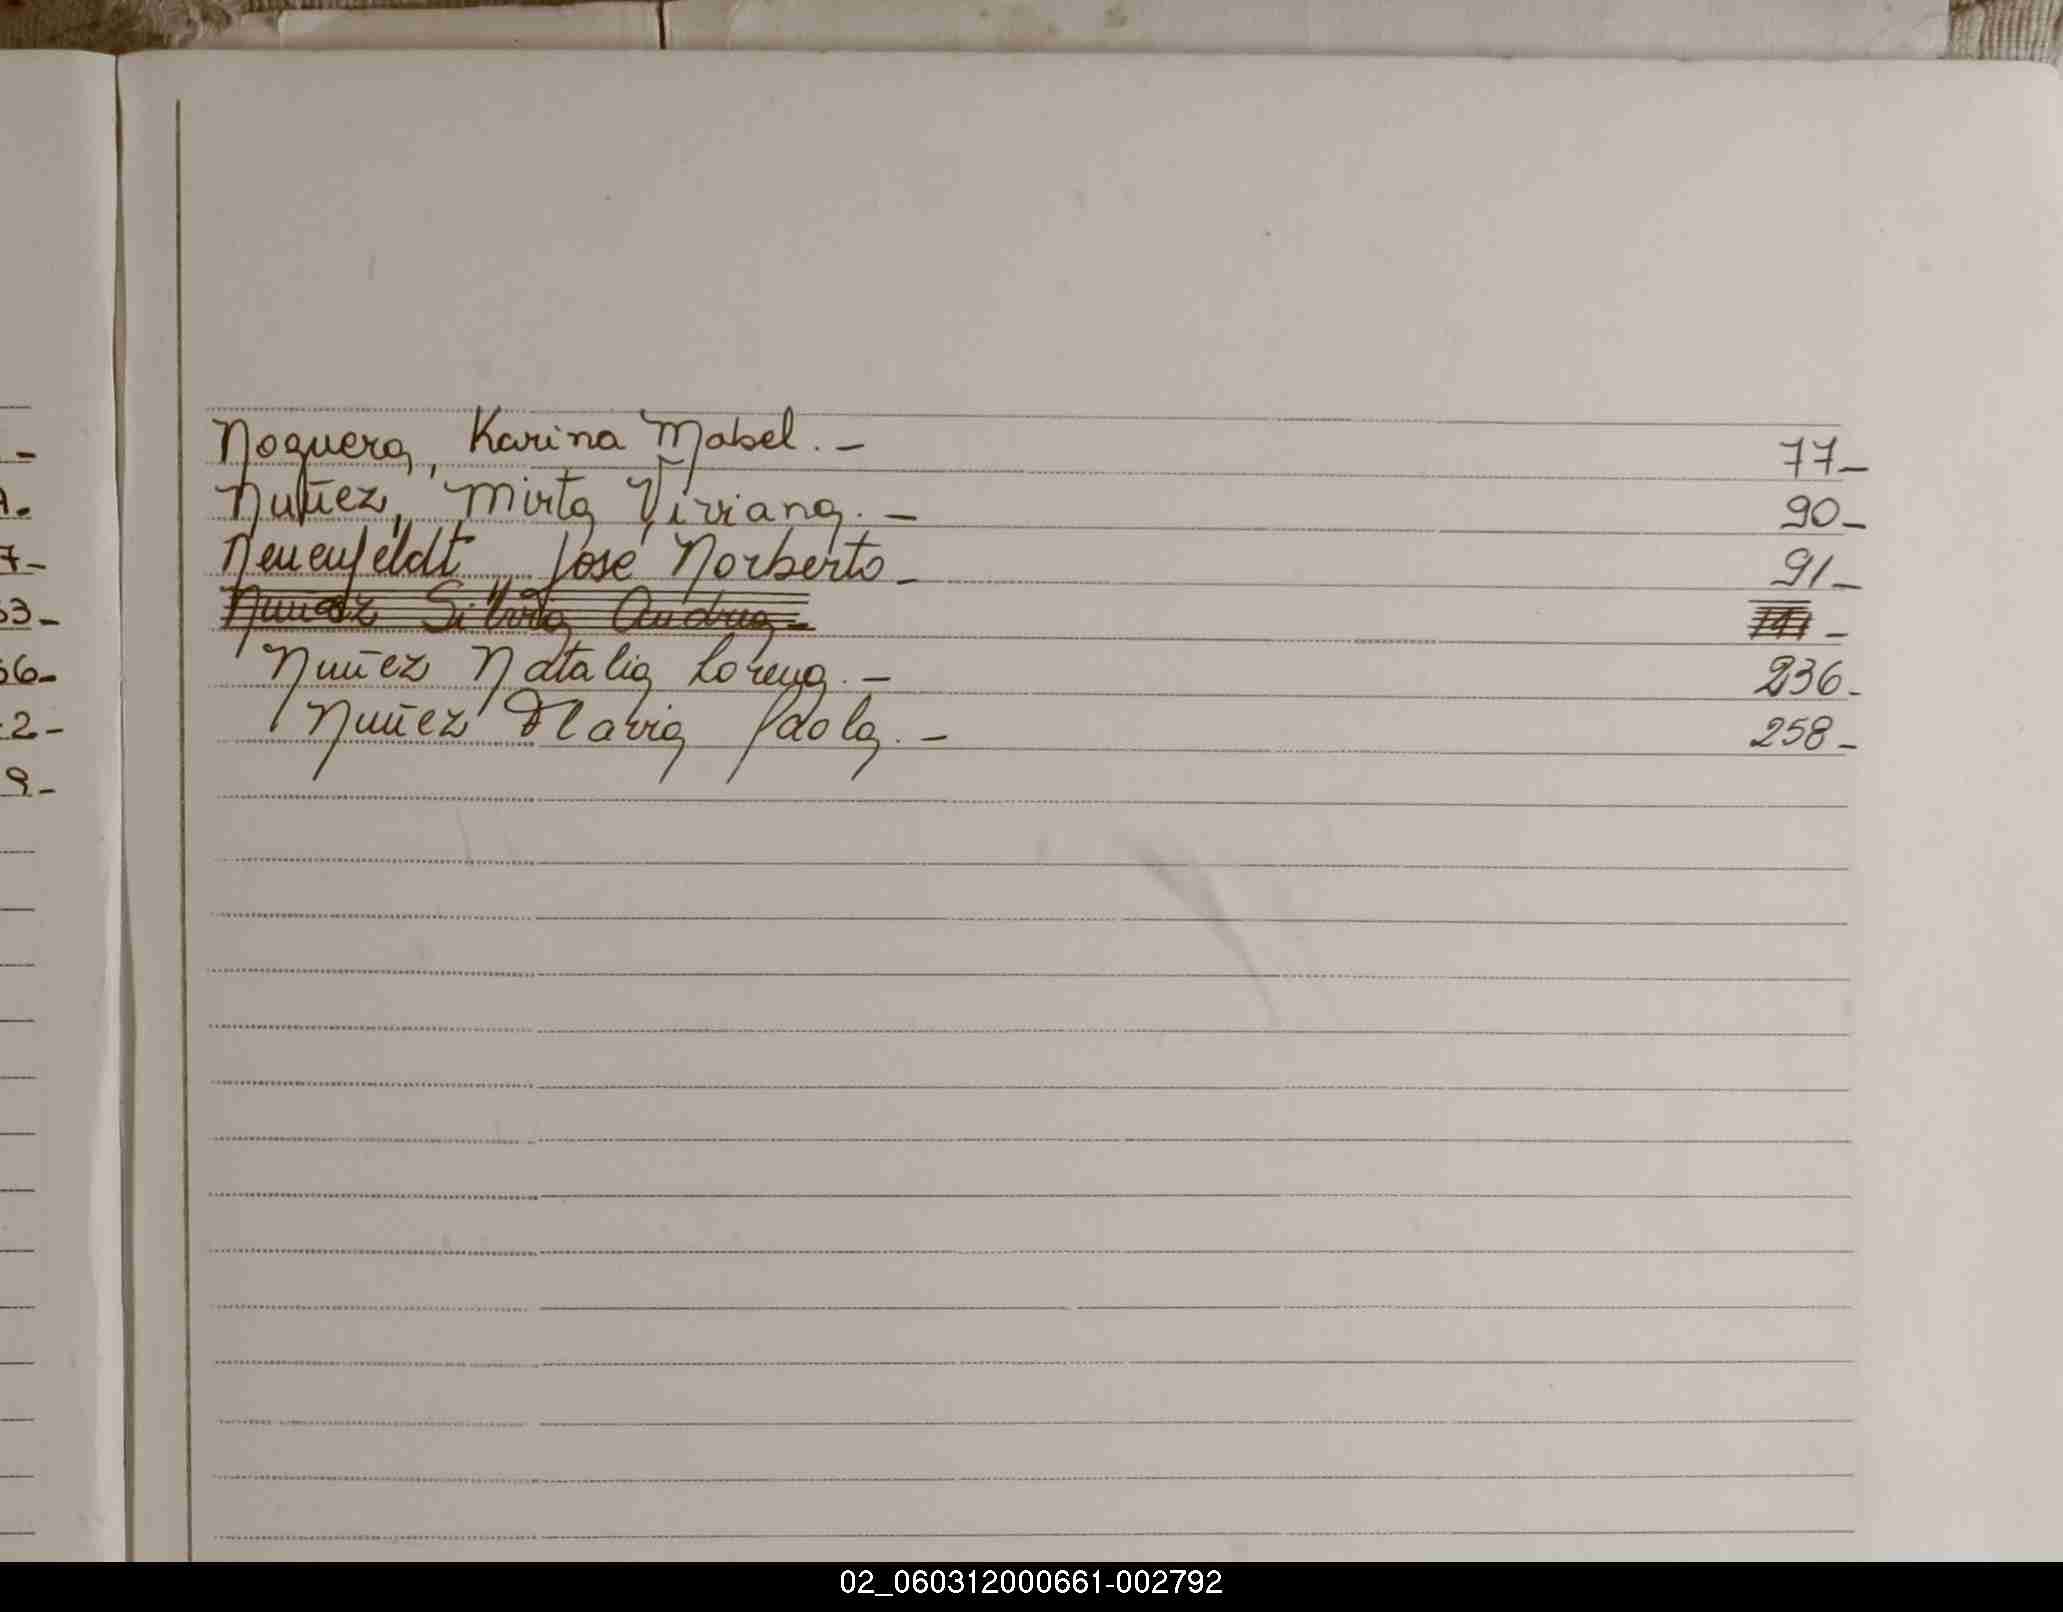 Noguera, Karina Mabel. - 77-
Nuñez, Mirta Viviana. - 90-
Neuenfeldt, José Norberto - 91-
Nuñez Silvia Andrea -
Nuñez Natalia Lorena. - 236-
Nuñez Flavia Paola. - 258-
7-
53-
56-
2-
9-
02_060312000661-002792